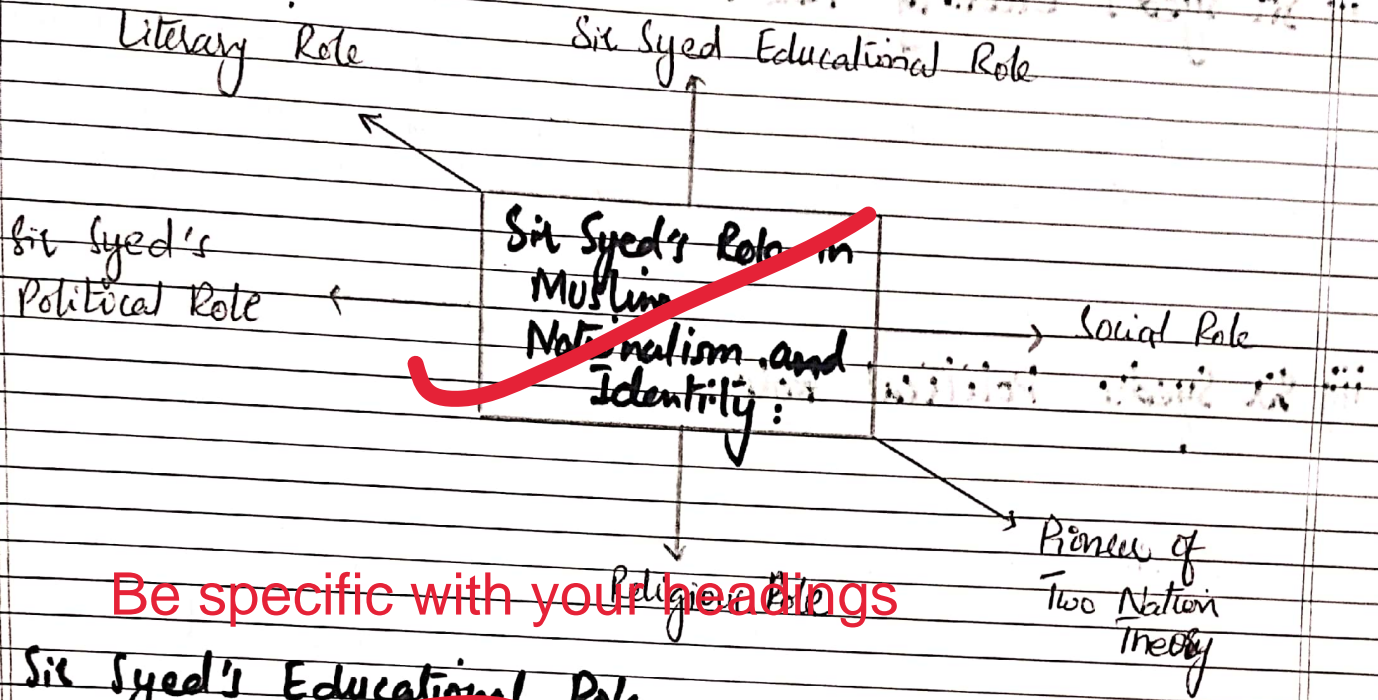 Literary Role
Sir Syed Educational Role
Sir Syed's
Political Role
Sir Syed's Role in
Muslim
Nationalism and
Identity:
Social Role
Pioneer of
Two Nation
Theory
Religious Role
Be specific with your headings
Sir Syed's Educational Role